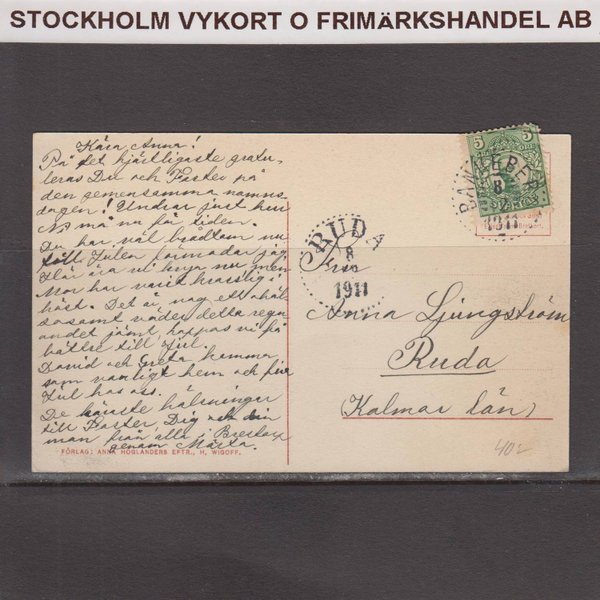 STOCKHOLM VYKORT O FRIMÄRKSHANDEL AB
Kära Anna!
På det hjärtligaste gratu-
leras Du och Faster på
den gemensamma namns-
dagen! Undrar just hur
Ni må nu för tiden.
Du har väl brådtom nu
till Julen förmodar jag.
Här äro vi krya nu, men
Mor har varit krasslig i
höst. Det är nog ett ohäl-
sosamt väder detta regn-
andet jämt hoppas vi på
bättre till Jul.
David och Greta komma
som vanligt hem och fira
Jul hos oss.
De käraste hälsningar
till Faster, Dig och din
man från alla i
genom Märta.
FÖRLAG: ANNA HÖGLANDERS EFTR., H. WIGOFF.
5 5
8
12
1911
RUDA
8
1911
Fru
Anna Ljungström
Ruda
(Kalmar län)
40:-